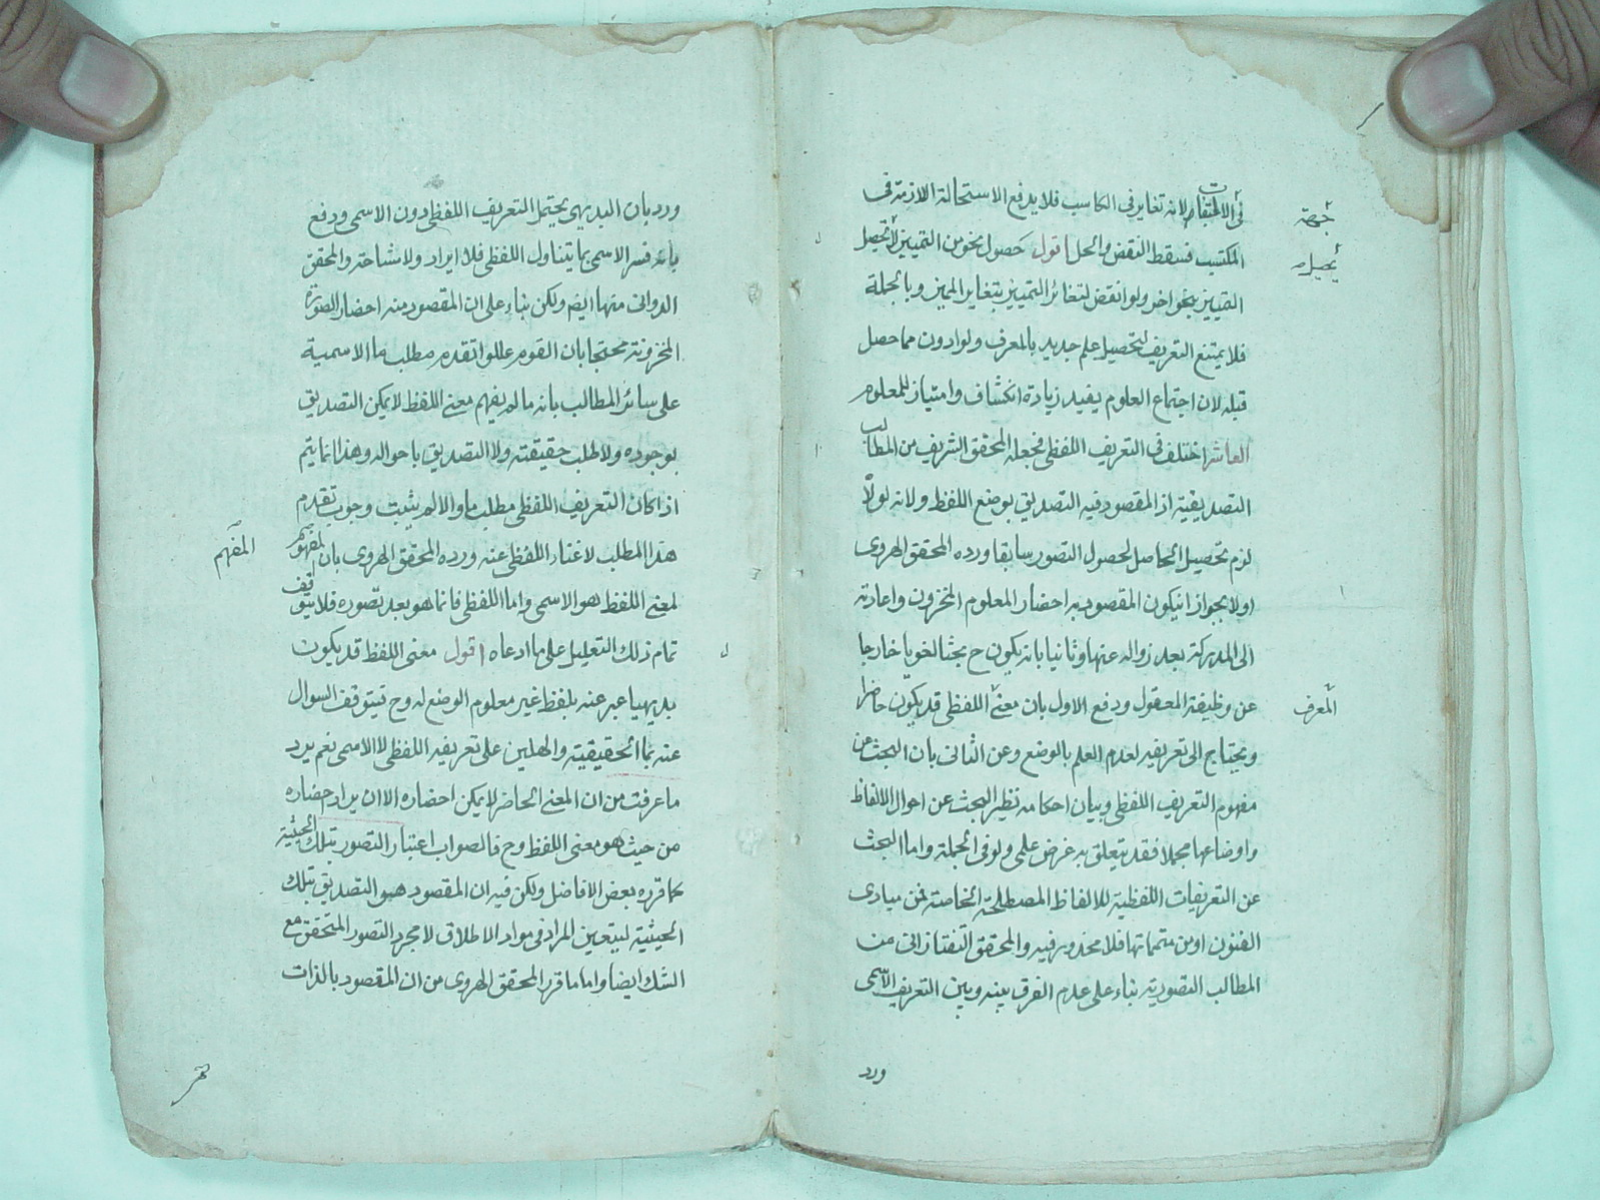 في الالتفات لانه تغاير في الكاسب فلا يدفع الاستحالة اللازمة في
جهة
المكتسب فسقط النقض والحل اقول حصول نحو من التمييز لا تحصل
تحصيل
التمييز بنحو اخر ولو انقض لتغائر التمييز بتغاير المميز وبالجملة
فلا يمتنع التعريف لتحصيل علم جديد بالمعرف ولو ادون مما حصل
قبله لان اجتماع العلوم يفيد زيادة انكشاف وامتياز للمعلوم
العاشر اختلف في التعريف اللفظي فجعله المحقق الشريف من المطالب
التصديقية اذ المقصود فيه التصديق بوضع اللفظ ولانه لولا
لزم تحصيل الحاصل لحصول التصور سابقا ورده المحقق الهروى
اولا بجواز انيكون المقصود به احضار المعلوم المخزون واعادته
الى المدركة بعد زواله عنها وثانيا بانه يكون ح بحثا لغويا خارجا
عن وظيفة المعقول ودفع الاول بان معنى اللفظي قد يكون حاضرا
المعرف
ويحتاج الى تعريفه لعدم العلم بالوضع وعن الثانى بان البحث عن
مفهوم التعريف اللفظي وبيان احكامه نظير البحث عن احوال الالفاظ
واوضاعها مجملا فقد يتعلق به غرض علمى ولو في الجملة واما البحث
عن التعريفات اللفظية للالفاظ المصطلحة الخاصة فمن مبادى
الفنون او من متمماتها فلا محذور فيه والمحقق التفتازانى من
المطالب التصورية بناء على عدم الفرق بينه وبين التعريف الاسمى
ورد
ورد بان البديهى يحتمل التعريف اللفظي دون الاسمى ودفع
بانه فسر الاسمى بما يتناول اللفظي فلا ايراد ولا مشاحة والمحقق
الدوانى منها ايضا ولكن بناء على ان المقصود منه احضار الصورة
المخزونة محتجا بان القوم عللوا تقدم مطلب ما الاسمية
على سائر المطالب بانه ما لم يفهم معنى اللفظ لا يمكن التصديق
بوجوده ولا طلب حقيقته ولا التصديق باحواله وهذا انما يتم
اذا كان التعريف اللفظي مطلب ما والا لم يثبت وجوب تقدم
هذا المطلب لاغناء اللفظي عنه ورده المحقق الهروى بان المفهوم
المفهم
لمعنى اللفظ هو الاسمى واما اللفظي فانما هو بعد تصوره فلا يتوقف
تمام ذلك التعليل على ما ادعاه اقول معنى اللفظ قد يكون
بديهيا عبر عنه بلفظ غير معلوم الوضع له وح فيتوقف السوال
عنه بما الحقيقية والهلين على تعريفه اللفظي لا الاسمى نعم يرد
ما عرفت من ان المعنى الحاضر لا يمكن احضاره الا ان يراد حضاره
من حيث هو معنى اللفظ وح فالصواب اعتبار التصور بتلك الحيثية
كما قرره بعض الافاضل ولكن فيه ان المقصود هو التصديق بتلك
الحيثية ليتعين المراد في مواد الاطلاق لا مجرد التصور المتحقق مع
الشك ايضا واما ما قرر المحقق الهروى من ان المقصود بالذات